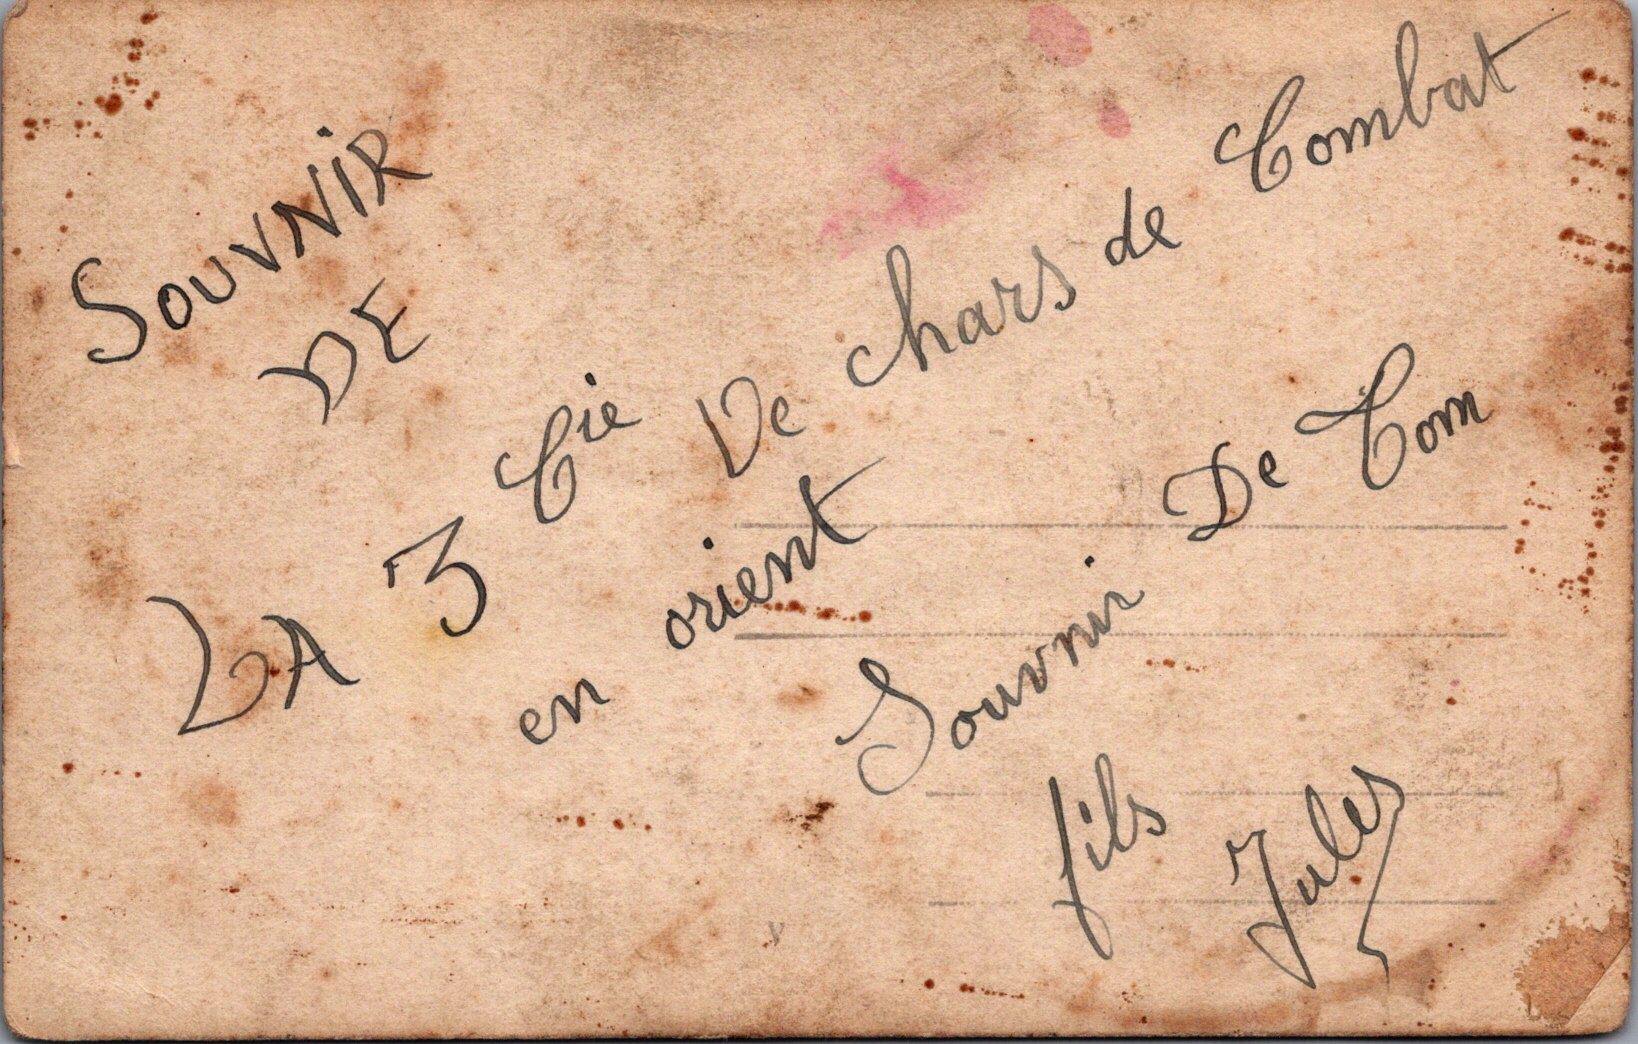 SOUVNIR
DE
LA 3 Cie De chars de Combat
en orient
Souvnir De Tom
fils Jules